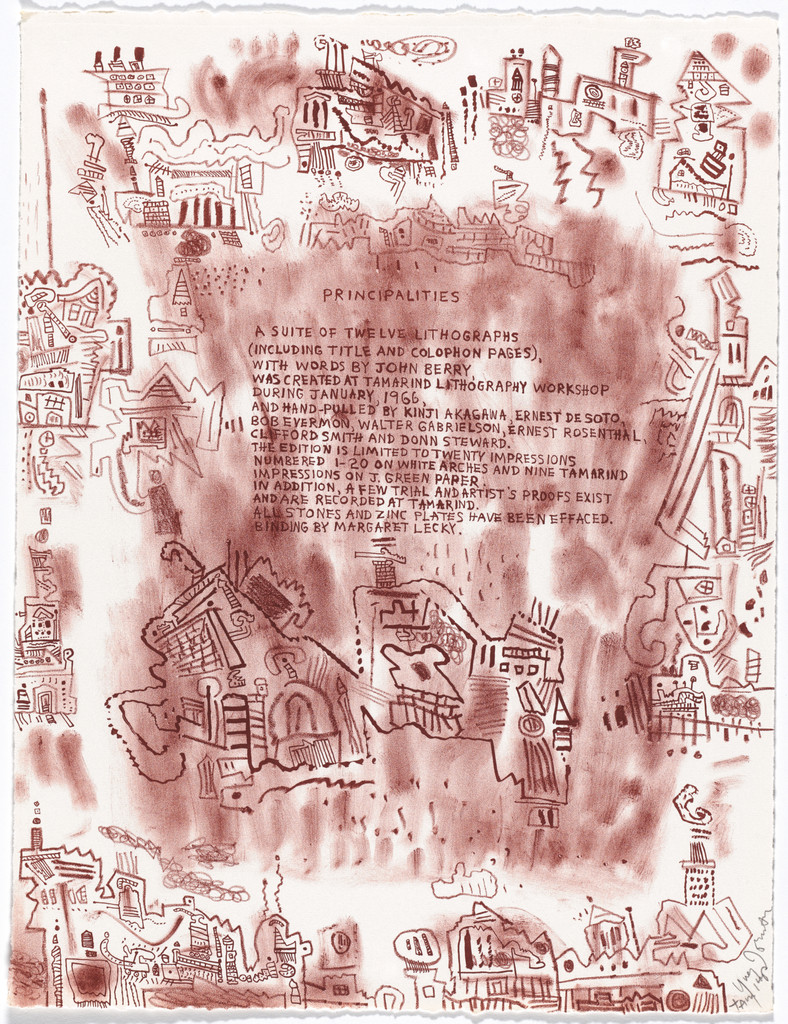 PRINCIPALITIES
A SUITE OF TWELVE LITHOGRAPHS
(INCLUDING TITLE AND COLOPHON PAGES),
WITH WORDS BY JOHN BERRY
WAS CREATED AT TAMARIND LITHOGRAPHY WORKSHOP
DURING JANUARY, 1966,
AND HAND-PULLED BY KINJI AKAGAWA, ERNEST DE SOTO,
BOB EVERMON, WALTER GABRIELSON, ERNEST ROSENTHAL,
CLIFFORD SMITH AND DONN STEWARD.
THE EDITION IS LIMITED TO TWENTY IMPRESSIONS
NUMBERED 1-20 ON WHITE ARCHES AND NINE TAMARIND
IMPRESSIONS ON J. GREEN PAPER.
IN ADDITION, A FEW TRIAL AND ARTIST'S PROOFS EXIST
AND ARE RECORDED AT TAMARIND.
ALL STONES AND ZINC PLATES HAVE BEEN EFFACED.
BINDING BY MARGARET LECKY.